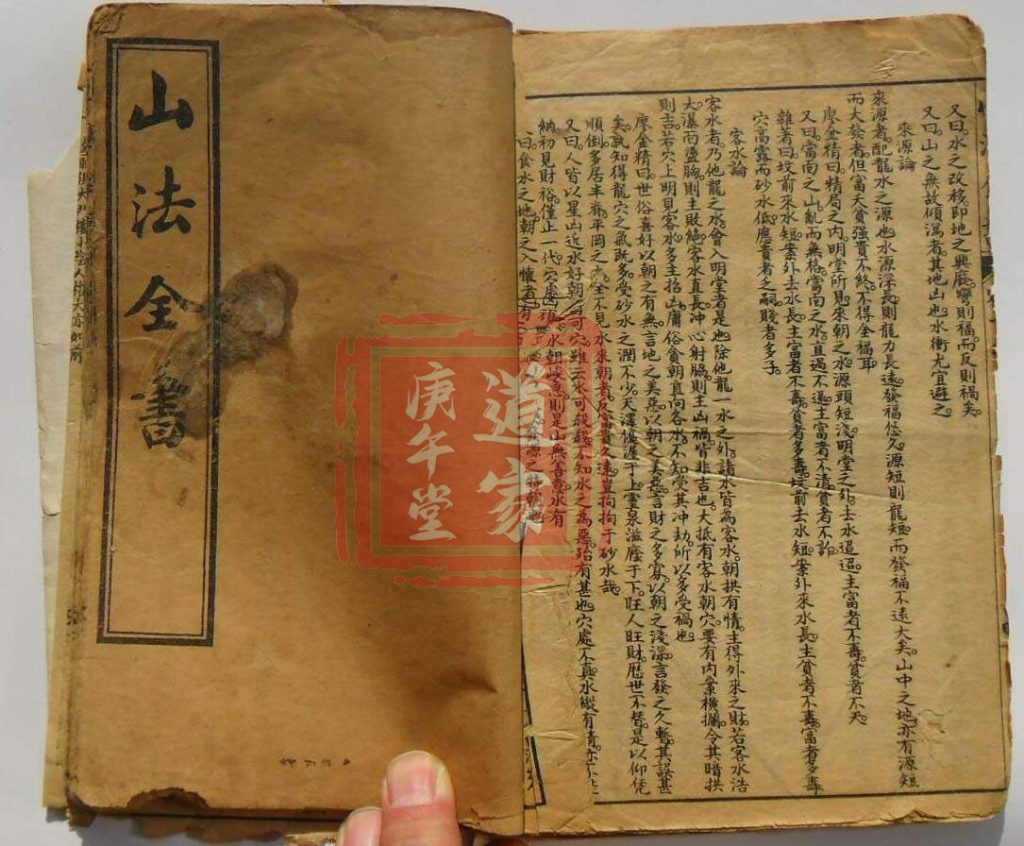 山法全書
又曰水之改移即地之興廢彎則福而反則禍矣
又曰山之無故傾瀉者其地山也水衝尤宜避之
來源論
來源者配龍水之源也水源深長則龍力長遠發福悠久源短則龍短而發福不遠大矣山中之地亦有源短
而大發者但富夭貴強貲不終不得全福耳
廖金精曰精局之內明堂所見來朝之水源頭短淺明堂之外去水迢迢主富者不壽貧者不夭
又曰當向之山亂而無格當向之水直過不遠主富者不清貧者不
雜著曰坟前來水短案外去水長主富者不壽貧者多壽坟前去水短案外來水長主貧者不壽富者多壽
穴高露而砂水低應貴者之嗣賤者多子
客水論
客水者乃他龍之水會入明堂者是也除他龍一水之外諸水皆為客水朝拱有情主得外來之財若客水浩
大瀑而盪胸則主敗絕客水直長冲心射脇則主凶禍皆非吉也大抵有客水朝穴要有內案橫攔令其暗拱
則吉若穴上明見客水多主招山庸俗貪朝直向各水不知受其冲劫所以多受禍也
廖金精曰世俗喜好以朝之有無言地之美惡以朝之美惡言財之多寡以朝之淺深言發之久暫其誤甚
矣孰知得龍穴之氣旣多受砂水之潤不少天澤優渥于上靈泉滋廢于下旺人旺財歷世不替是以仰仗
順倒多居半莽平岡之大全不見水來朝者反富貴久遠豈拘拘于砂水哉
又曰人皆以星山近水好朝
納初見財裕僅止一代穴處
曰食水之地朝之入懷者有
道家
庚午堂